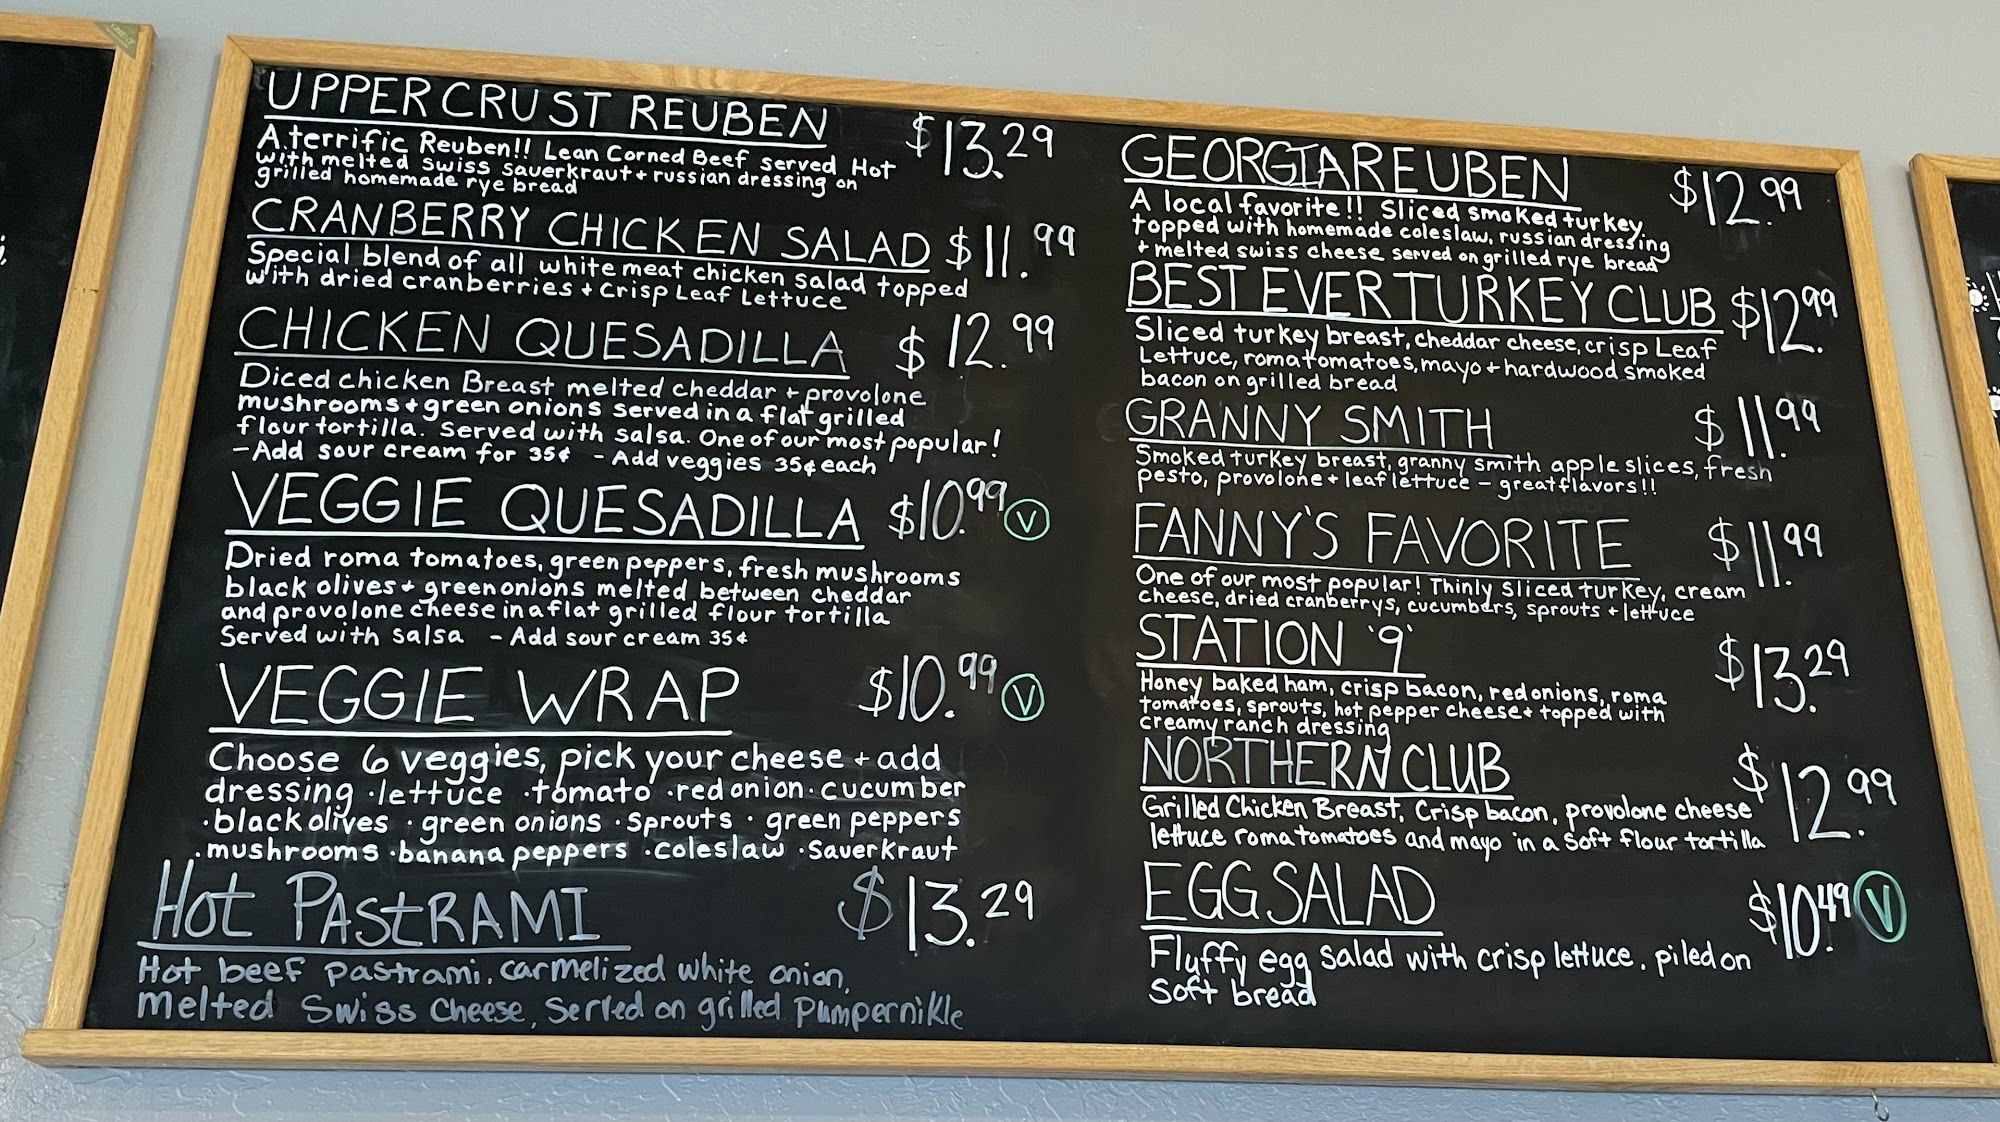 UPPER CRUST REUBEN $13.29
A terrific Reuben!! Lean Corned Beef served Hot
with melted swiss sauerkraut + russian dressing on
grilled homemade rye bread
CRANBERRY CHICKEN SALAD $11.99
Special blend of all white meat chicken salad topped
with dried cranberries + Crisp Leaf Lettuce
CHICKEN QUESADILLA $12.99
Diced chicken Breast melted cheddar + provolone
mushrooms + green onions served in a flat grilled
flour tortilla. Served with salsa. One of our most popular!
- Add sour cream for 35¢ - Add veggies 35¢ each
VEGGIE QUESADILLA $10.99 V
Dried roma tomatoes, green peppers, fresh mushrooms
black olives + green onions melted between cheddar
and provolone cheese in a flat grilled flour tortilla
Served with salsa - Add sour cream 35¢
VEGGIE WRAP $10.99 V
Choose 6 veggies, pick your cheese + add
dressing · lettuce · tomato · red onion · cucumber
· black olives · green onions · sprouts · green peppers
· mushrooms · banana peppers · coleslaw · sauerkraut
HOT PASTRAMI $13.29
Hot beef pastrami, carmelized white onion,
Melted Swiss Cheese, Served on grilled Pumpernikle
GEORGIA REUBEN $12.99
A local favorite!! Sliced smoked turkey,
topped with homemade coleslaw, russian dressing
+ melted swiss cheese served on grilled rye bread
BEST EVER TURKEY CLUB $12.99
Sliced turkey breast, cheddar cheese, crisp Leaf
Lettuce, roma tomatoes, mayo + hardwood smoked
bacon on grilled bread
GRANNY SMITH $11.99
Smoked turkey breast, granny smith apple slices, fresh
pesto, provolone + leaf lettuce - great flavors!!
FANNY'S FAVORITE $11.99
One of our most popular! Thinly sliced turkey, cream
cheese, dried cranberrys, cucumbers, sprouts + lettuce
STATION '9' $13.29
Honey baked ham, crisp bacon, red onions, roma
tomatoes, sprouts, hot pepper cheese + topped with
creamy ranch dressing
NORTHERN CLUB $12.99
Grilled Chicken Breast, Crisp bacon, provolone cheese
lettuce roma tomatoes and mayo in a soft flour tortilla
EGG SALAD $10.49 V
Fluffy egg salad with crisp lettuce, piled on
soft bread